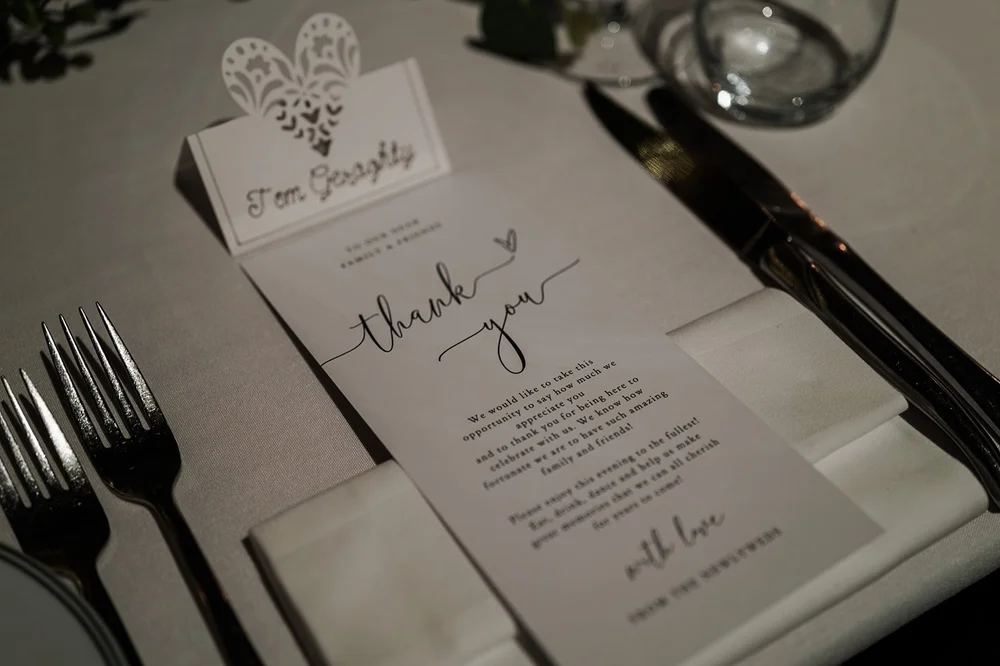 Tom Geraghty
TO OUR DEAR
FAMILY & FRIENDS
thank
you
We would like to take this
opportunity to say how much we
appreciate you
and to thank you for being here to
celebrate with us. We know how
fortunate we are to have such amazing
family and friends!
Please enjoy this evening to the fullest!
Eat, drink, dance and help us make
great memories that we can all cherish
for years to come!
with love
FROM THE NEWLYWEDS